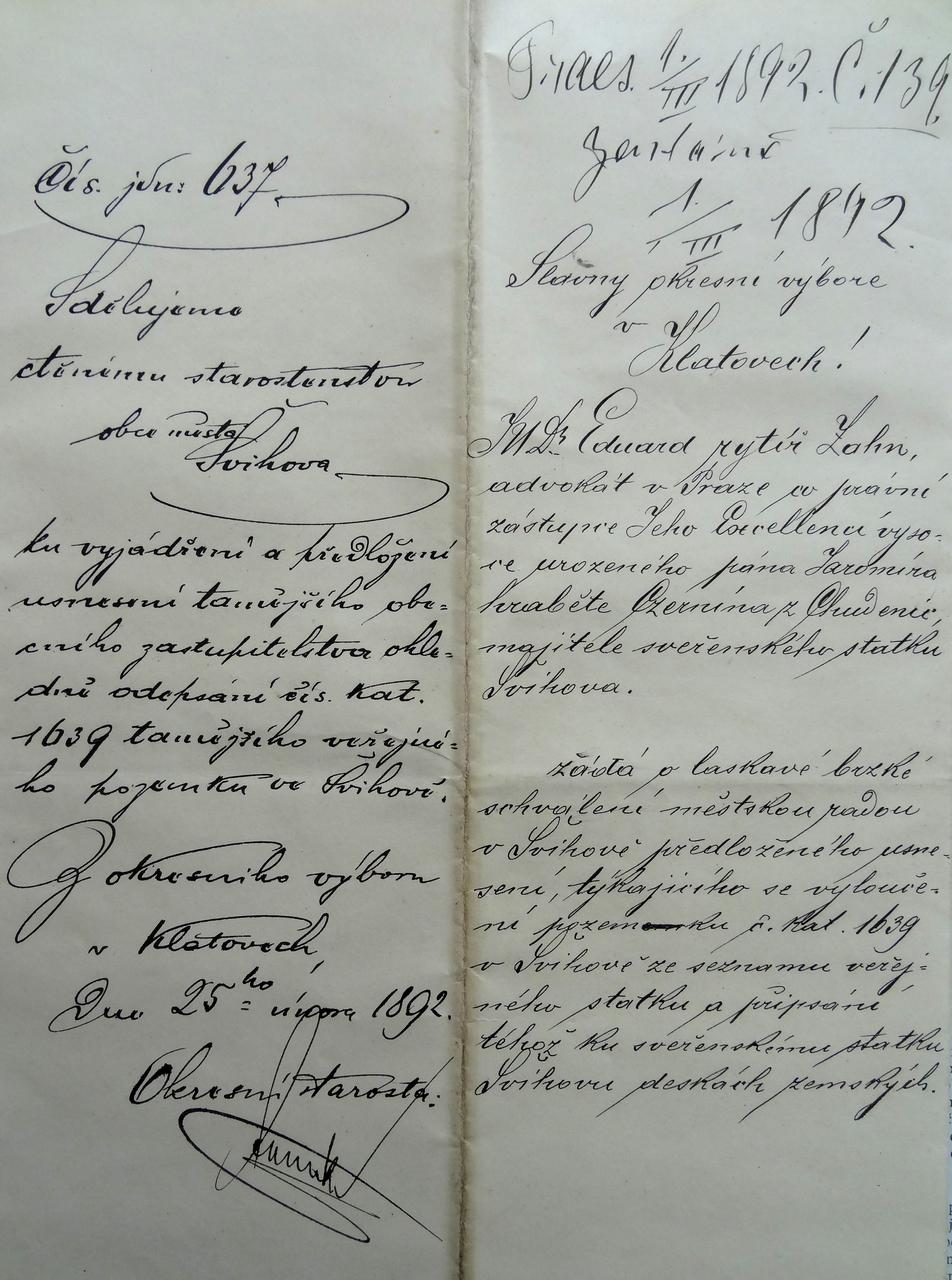 Čís. jdn: 637
Sdělujeme
ctěnému starostenstvu
obce města
Švihova
ku vyjádření a předložení
usnesení tamějšího obe=
cního zastupitelstva ohle=
dně odepsání čís. kat.
1639 tamějšího veřejné=
ho pozemku ve Švihově.
Z okresního výboru
v Klatovech,
Dne 25ho února 1892.
Okresní starosta:
Praes. 1./III 1892. Č. 139.
1./III 1892.
Slavný okresní výbore
v
Klatovech!
JUDr. Eduard rytíř Zahn,
advokát v Praze co právní
zástupce Jeho Excellencí vyso-
ce urozeného pána Jaromíra
hraběte Czernína z Chudenic,
majitele svěřenského statku
Švihova.
žádá o laskavé brzké
schválení městskou radou
v Švihově předloženého usne-
sení, týkajícího se vylouče-
ní pozemku č. kat. 1639
v Švihově ze seznamu veřej-
ného statku a připsání
téhož ku svěřenskému statku
Švihovu deskách zemských.